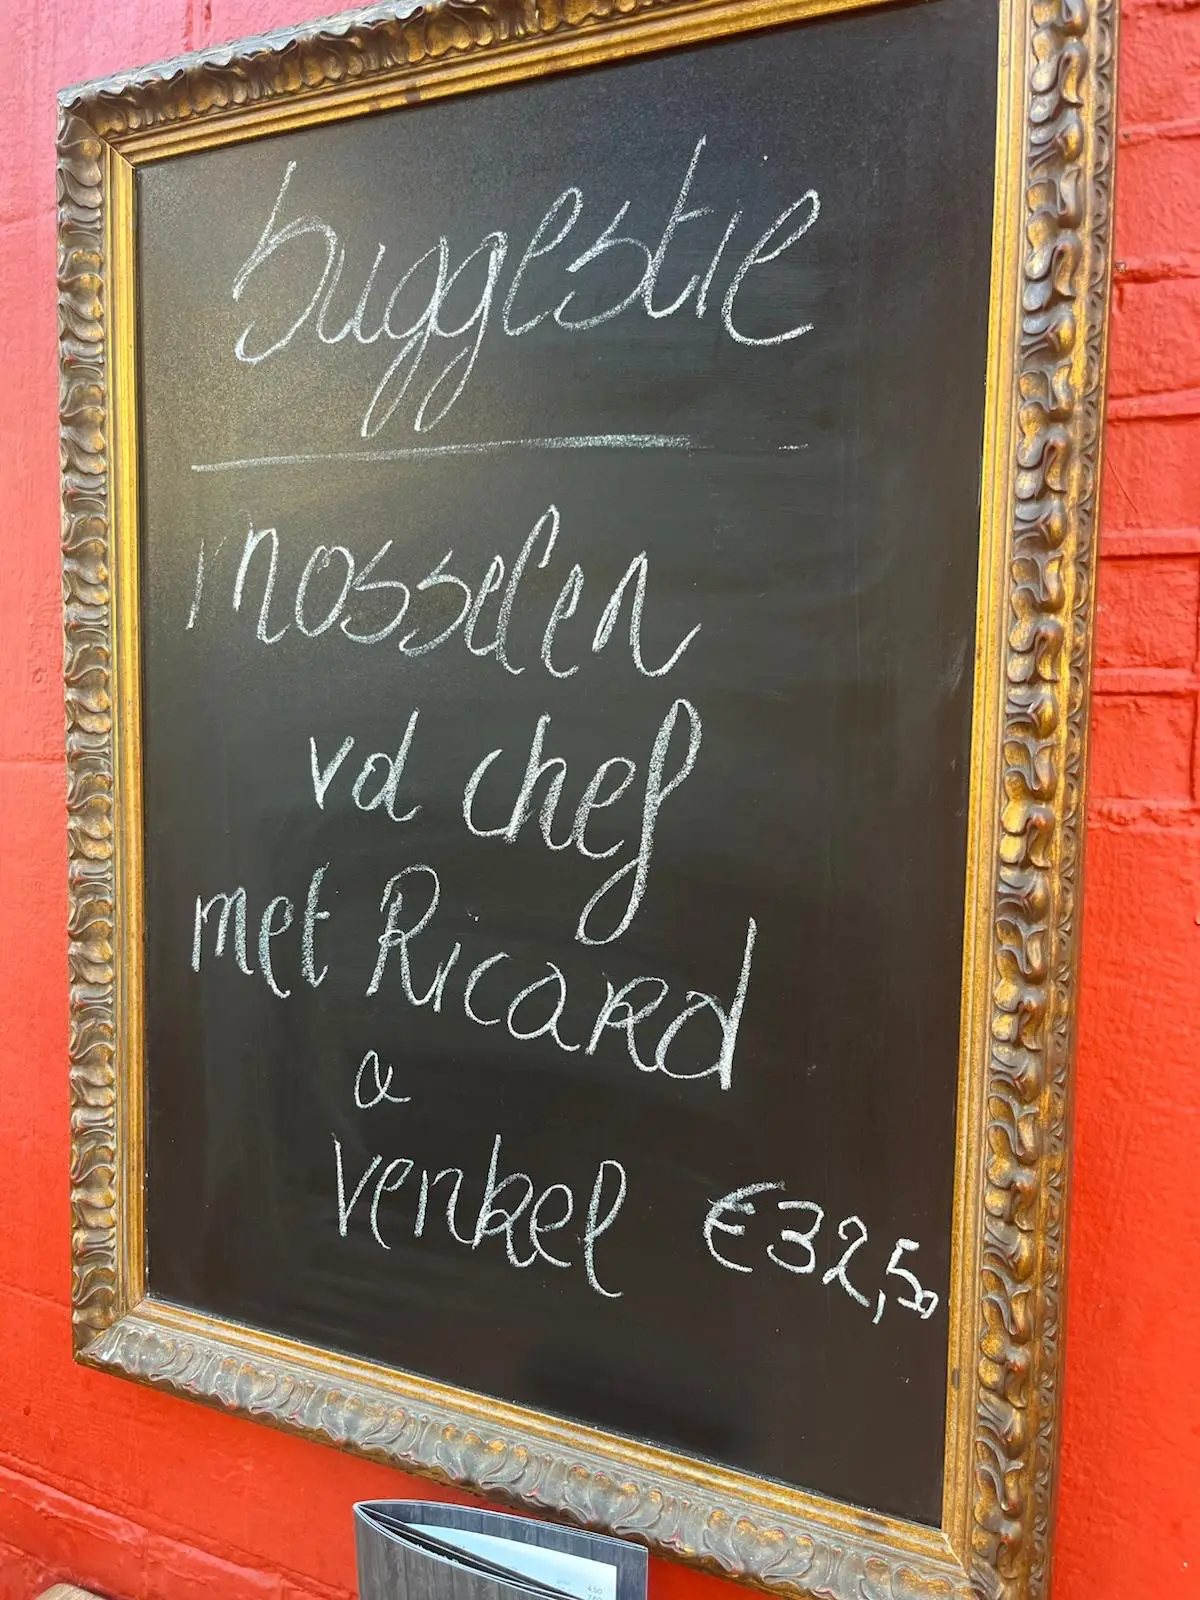 Suggestie
mosselen
vd chef
met Ricard
&
venkel €32,50
4,50